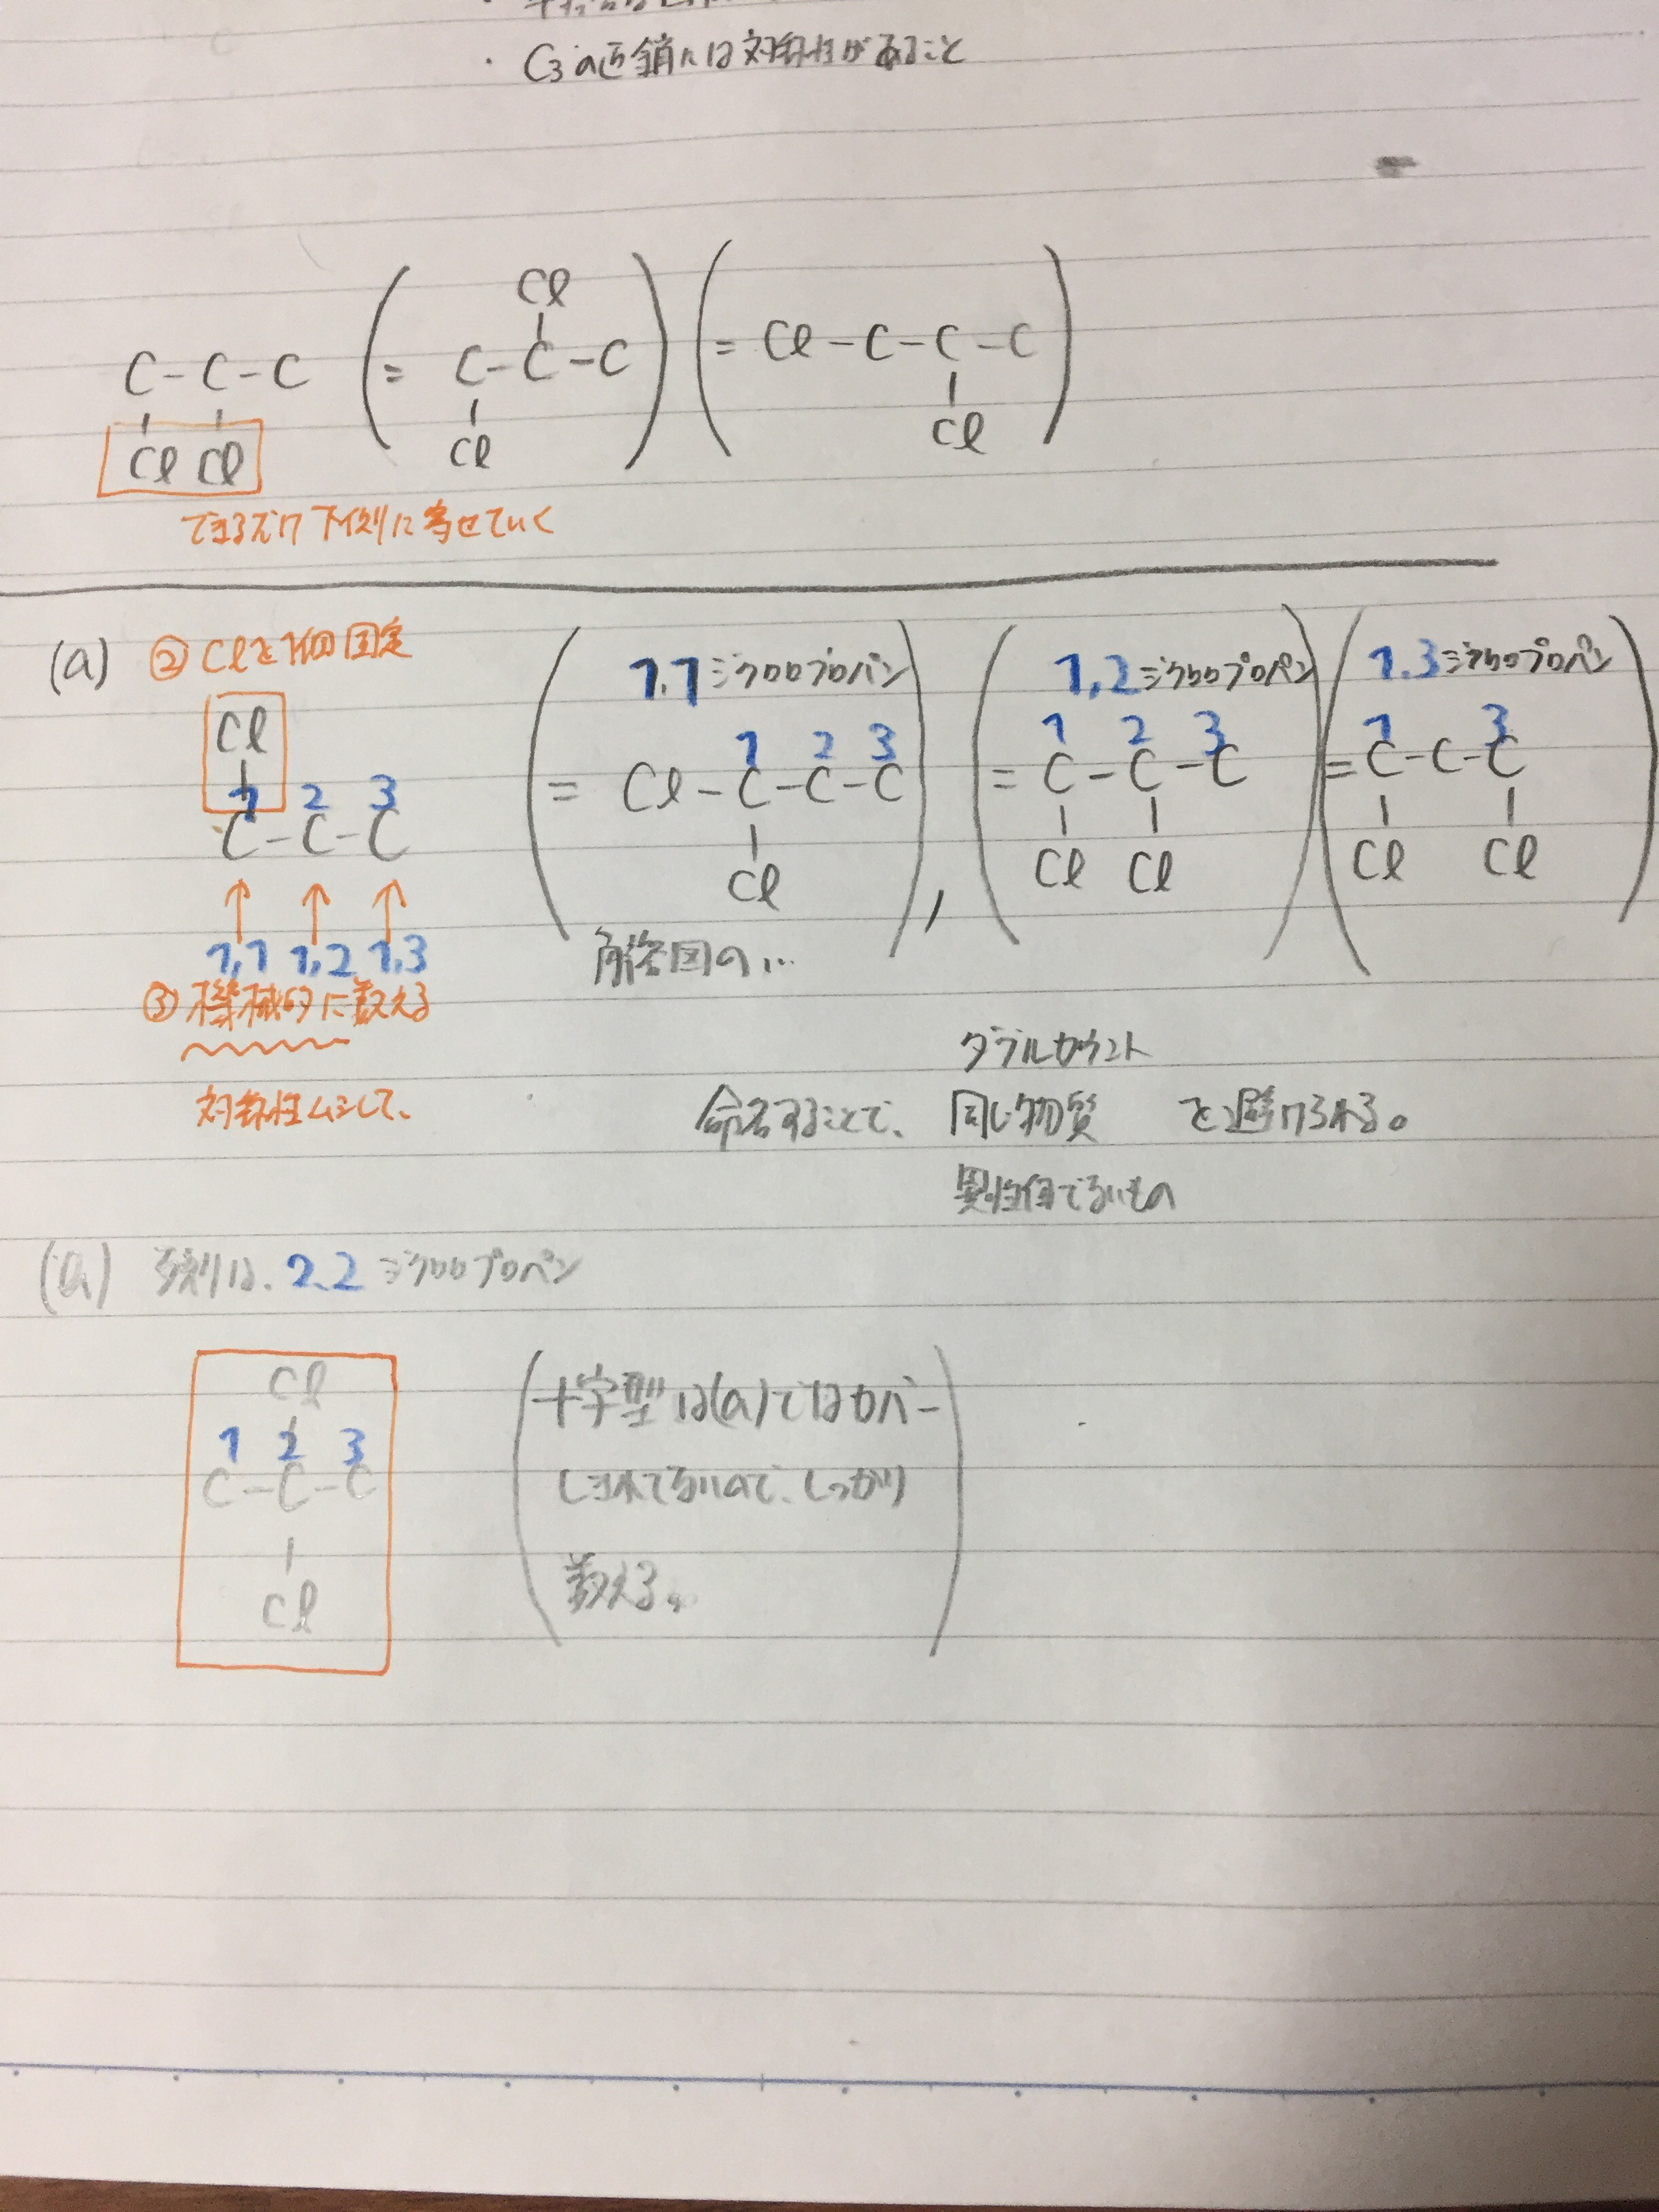 ・C₃の直鎖には対称性があること
Cl
C-C-C (= C-C-C) (= Cl-C-C-C)
Cl Cl Cl Cl
できるだけ下側に寄せていく
(a) ② Clを1個固定
1,1ジクロロプロパン 1,2ジクロロプロパン 1,3ジクロロプロパン
Cl
1 2 3 1 2 3 1 2 3 1 3
C-C-C (= Cl-C-C-C), (= C-C-C) (= C-C-C)
Cl Cl Cl Cl Cl
1,1 1,2 1,3
解答図の…
③ 機械的に数える
対称性ムシして、
ダブルカウント
命名することで、同じ物質 を避けられる。
異性体でないもの
残りは、2,2ジクロロプロパン
Cl
1 2 3
C-C-C
Cl
(十字型は(a)ではカバー
しきれてないので、しっかり
数える。)